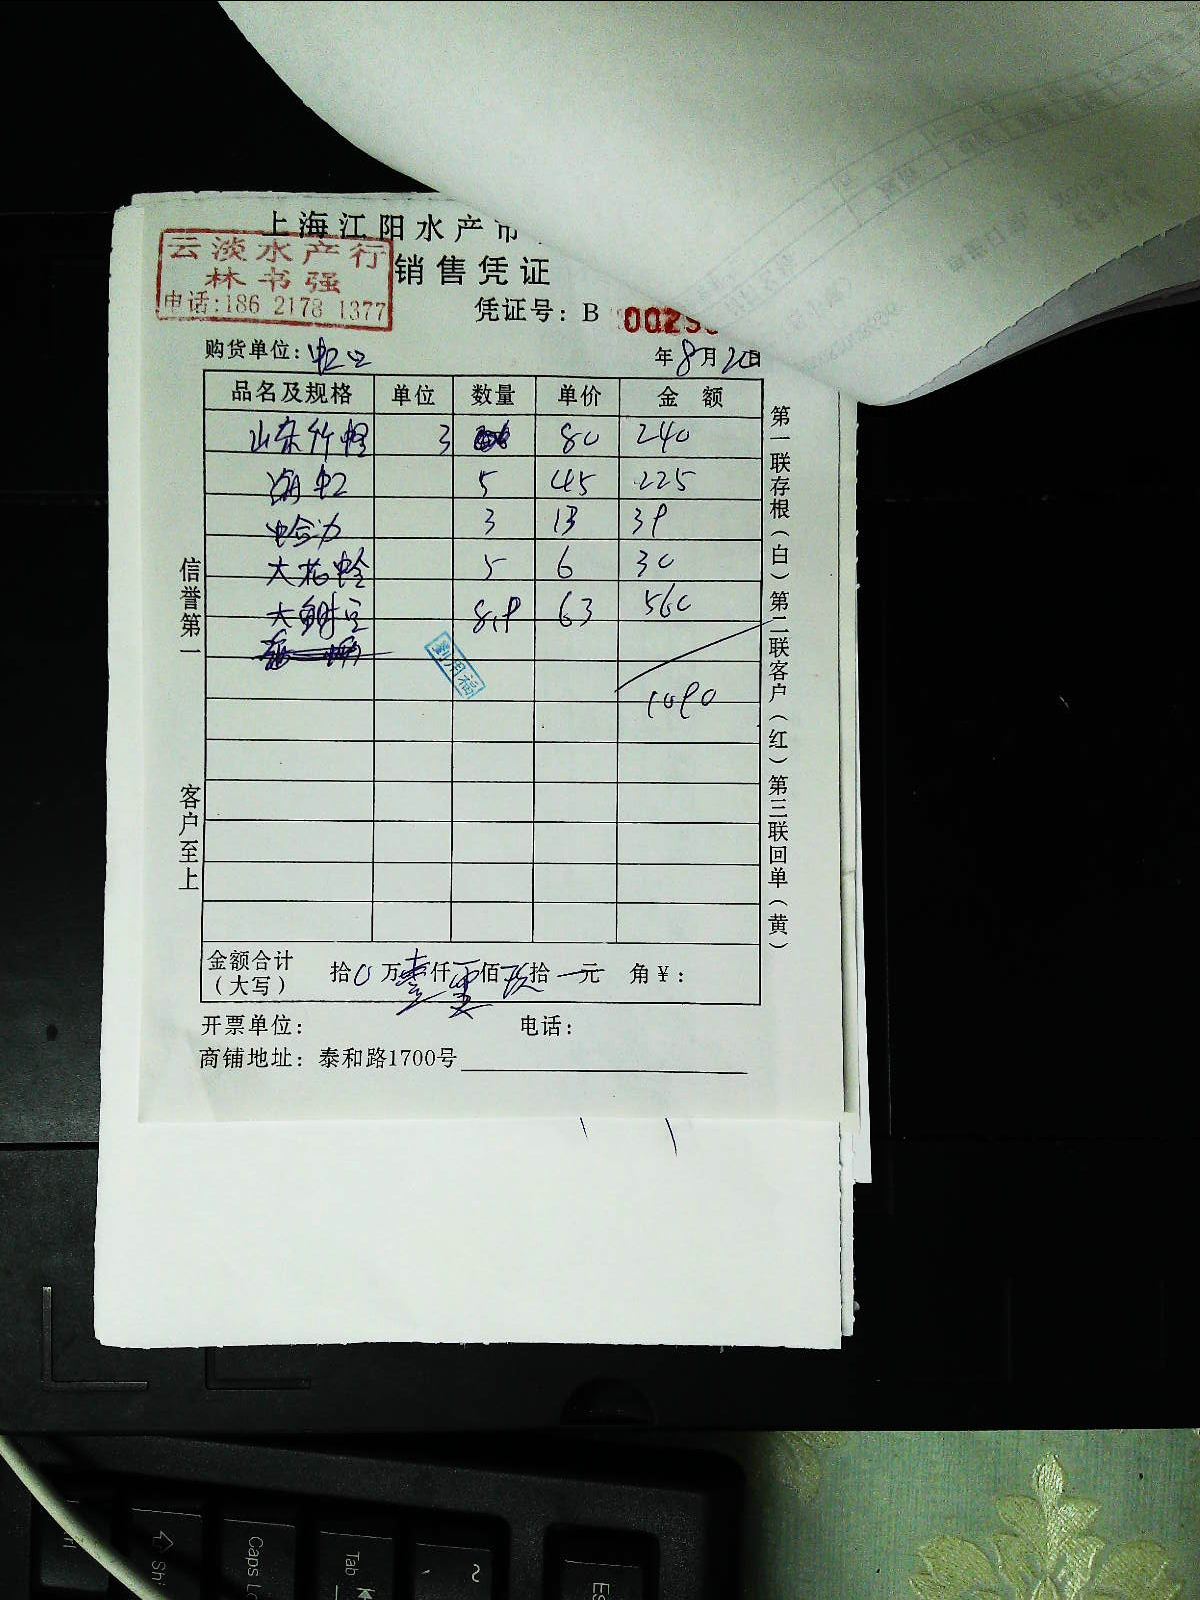 上海江阳水产市
云淡水产行
林书强
电话:186 2178 1377
销售凭证
凭证号: B 0025
购货单位: 虹口
年8月20日
品名及规格 单位 数量 单价 金额
山东竹蛏 3 80 240
湖虹 5 45 225
蛤力 3 13 39
大花蛤 5 6 30
8.9 63 560
劉用福
1090
信誉第一
客户至上
第一联存根(白)第二联客户(红)第三联回单(黄)
金额合计
(大写)
拾0万壹仟零佰玖拾一元 角¥:
开票单位: 电话:
商铺地址: 泰和路1700号
Caps
Tab